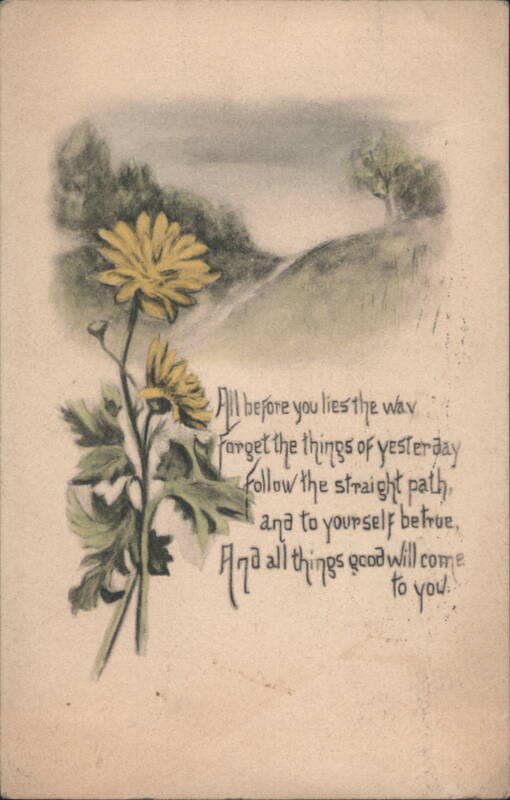 All before you lies the way
Forget the things of yesterday
Follow the straight path,
and to yourself be true,
And all things good will come
to you.